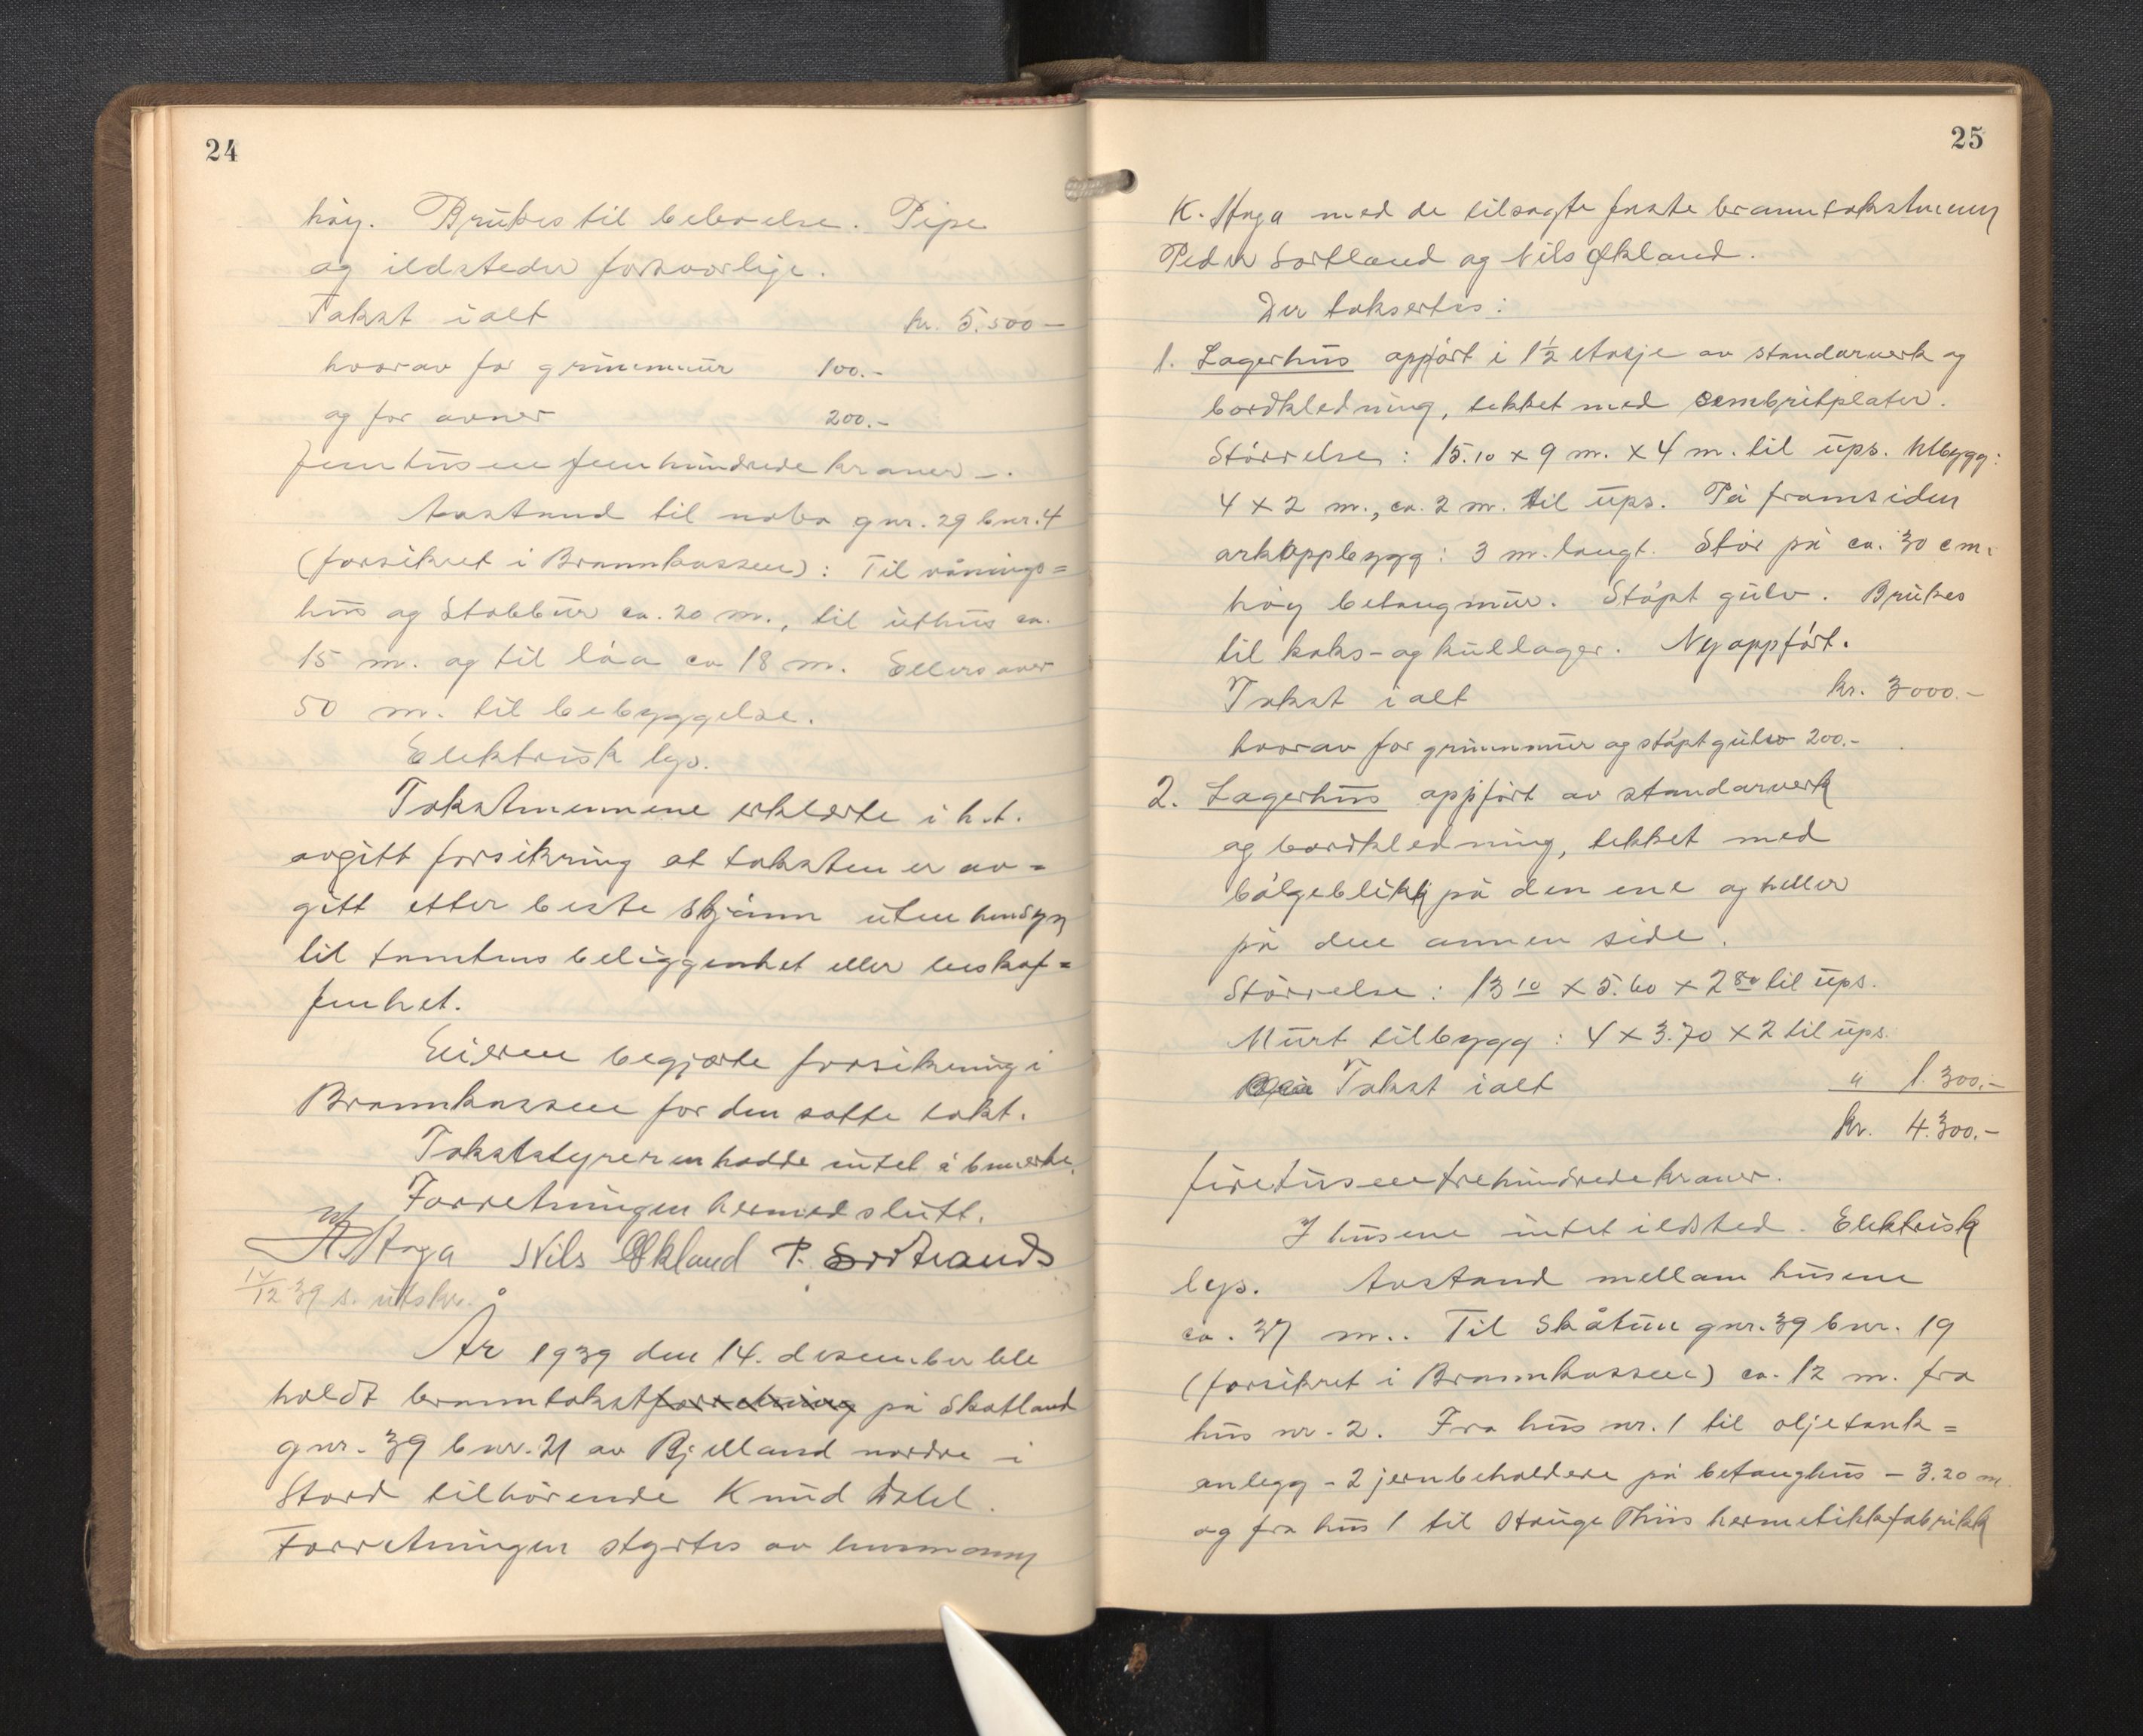 24
høy. Brukes til beboelse. Pipe
og ildsteder forsvarlige.
Takst ialt kr. 5.500 –
hvorav for grunnmur 100.-
og for ovner 200.-
femtusenfemhundredekroner –.
Avstand til nabo gnr. 29 bnr. 4
(forsikret i Brannkassen): Til vånings=
hus og Stabbur ca. 20 m., til uthus ca.
15 m. og til löa ca 18 m. Ellers over
50 m. til bebyggelse.
Elektrisk lys.
Takstmennene erklærte i h.t.
avgitt forsikring at taksten er av=
gitt etter beste skjønn uten hensyn
til tomtens beliggenhet eller beskaf=
fenhet.
Eieren begjærte forsikring i
Brannkassen for den satte takt.
Takststyreren hadde intet å bemerke.
Forretningen hermed slutt.
K. Haga Nils Økland P. Sortland
/12 39 s. utskr.
År 1939 den 14. desember ble
holdt branntakstforretning på Skatland
gnr. 39 bnr. 21 av Bjelland nordre i
Stord tilhörende Knud Dahl.
Forretningen styrtes av lensmann
25
K. Haga med de tilsagte faste branntakstmenn
Peder Sortland og Nils Økland.
Der taksertes:
1. Lagerhus oppført i 1½ etasje av standarverk og
bordkledning, tekket med cembritplater.
Störrelse: 15.10 x 9 m. x 4 m. til ups. Utbygg:
4 x 2 m., ca. 2 m. til ups. På framsiden
arkoppbygg: 3 m. langt. Står på ca. 30 cm.
høy betongmur. Støpt gulv. Brukes
til koks- og kullager. Ny oppført.
Takst ialt kr. 3000.-
hvorav for grunnmur og støpt gulv 200.-
2. Lagerhus oppført av standarverk
og bordkledning, tekket med
bølgeblikk på den ene og heller
på den annen side.
Störrelse: 13 10 x 5.60 x 2 80 til ups.
Murt tilbygg: 4 x 3.70 x 2 til ups.
Takst ialt " 1.300.-
kr. 4.300.-
firetusentrehundredekroner.
I husene intet ildsted. Elektrisk
lys. Avstand mellom husene
ca. 37 m.. Til Skåtun gnr. 39 bnr. 19
(forsikret i Brannkassen) ca. 12 m. fra
hus nr. 2. Fra hus nr. 1 til oljetank=
anlegg – 2 jernbeholdere på betonghus – 3.20 m.
og fra hus 1 til Hauge Thiis hermetikkfabrikk